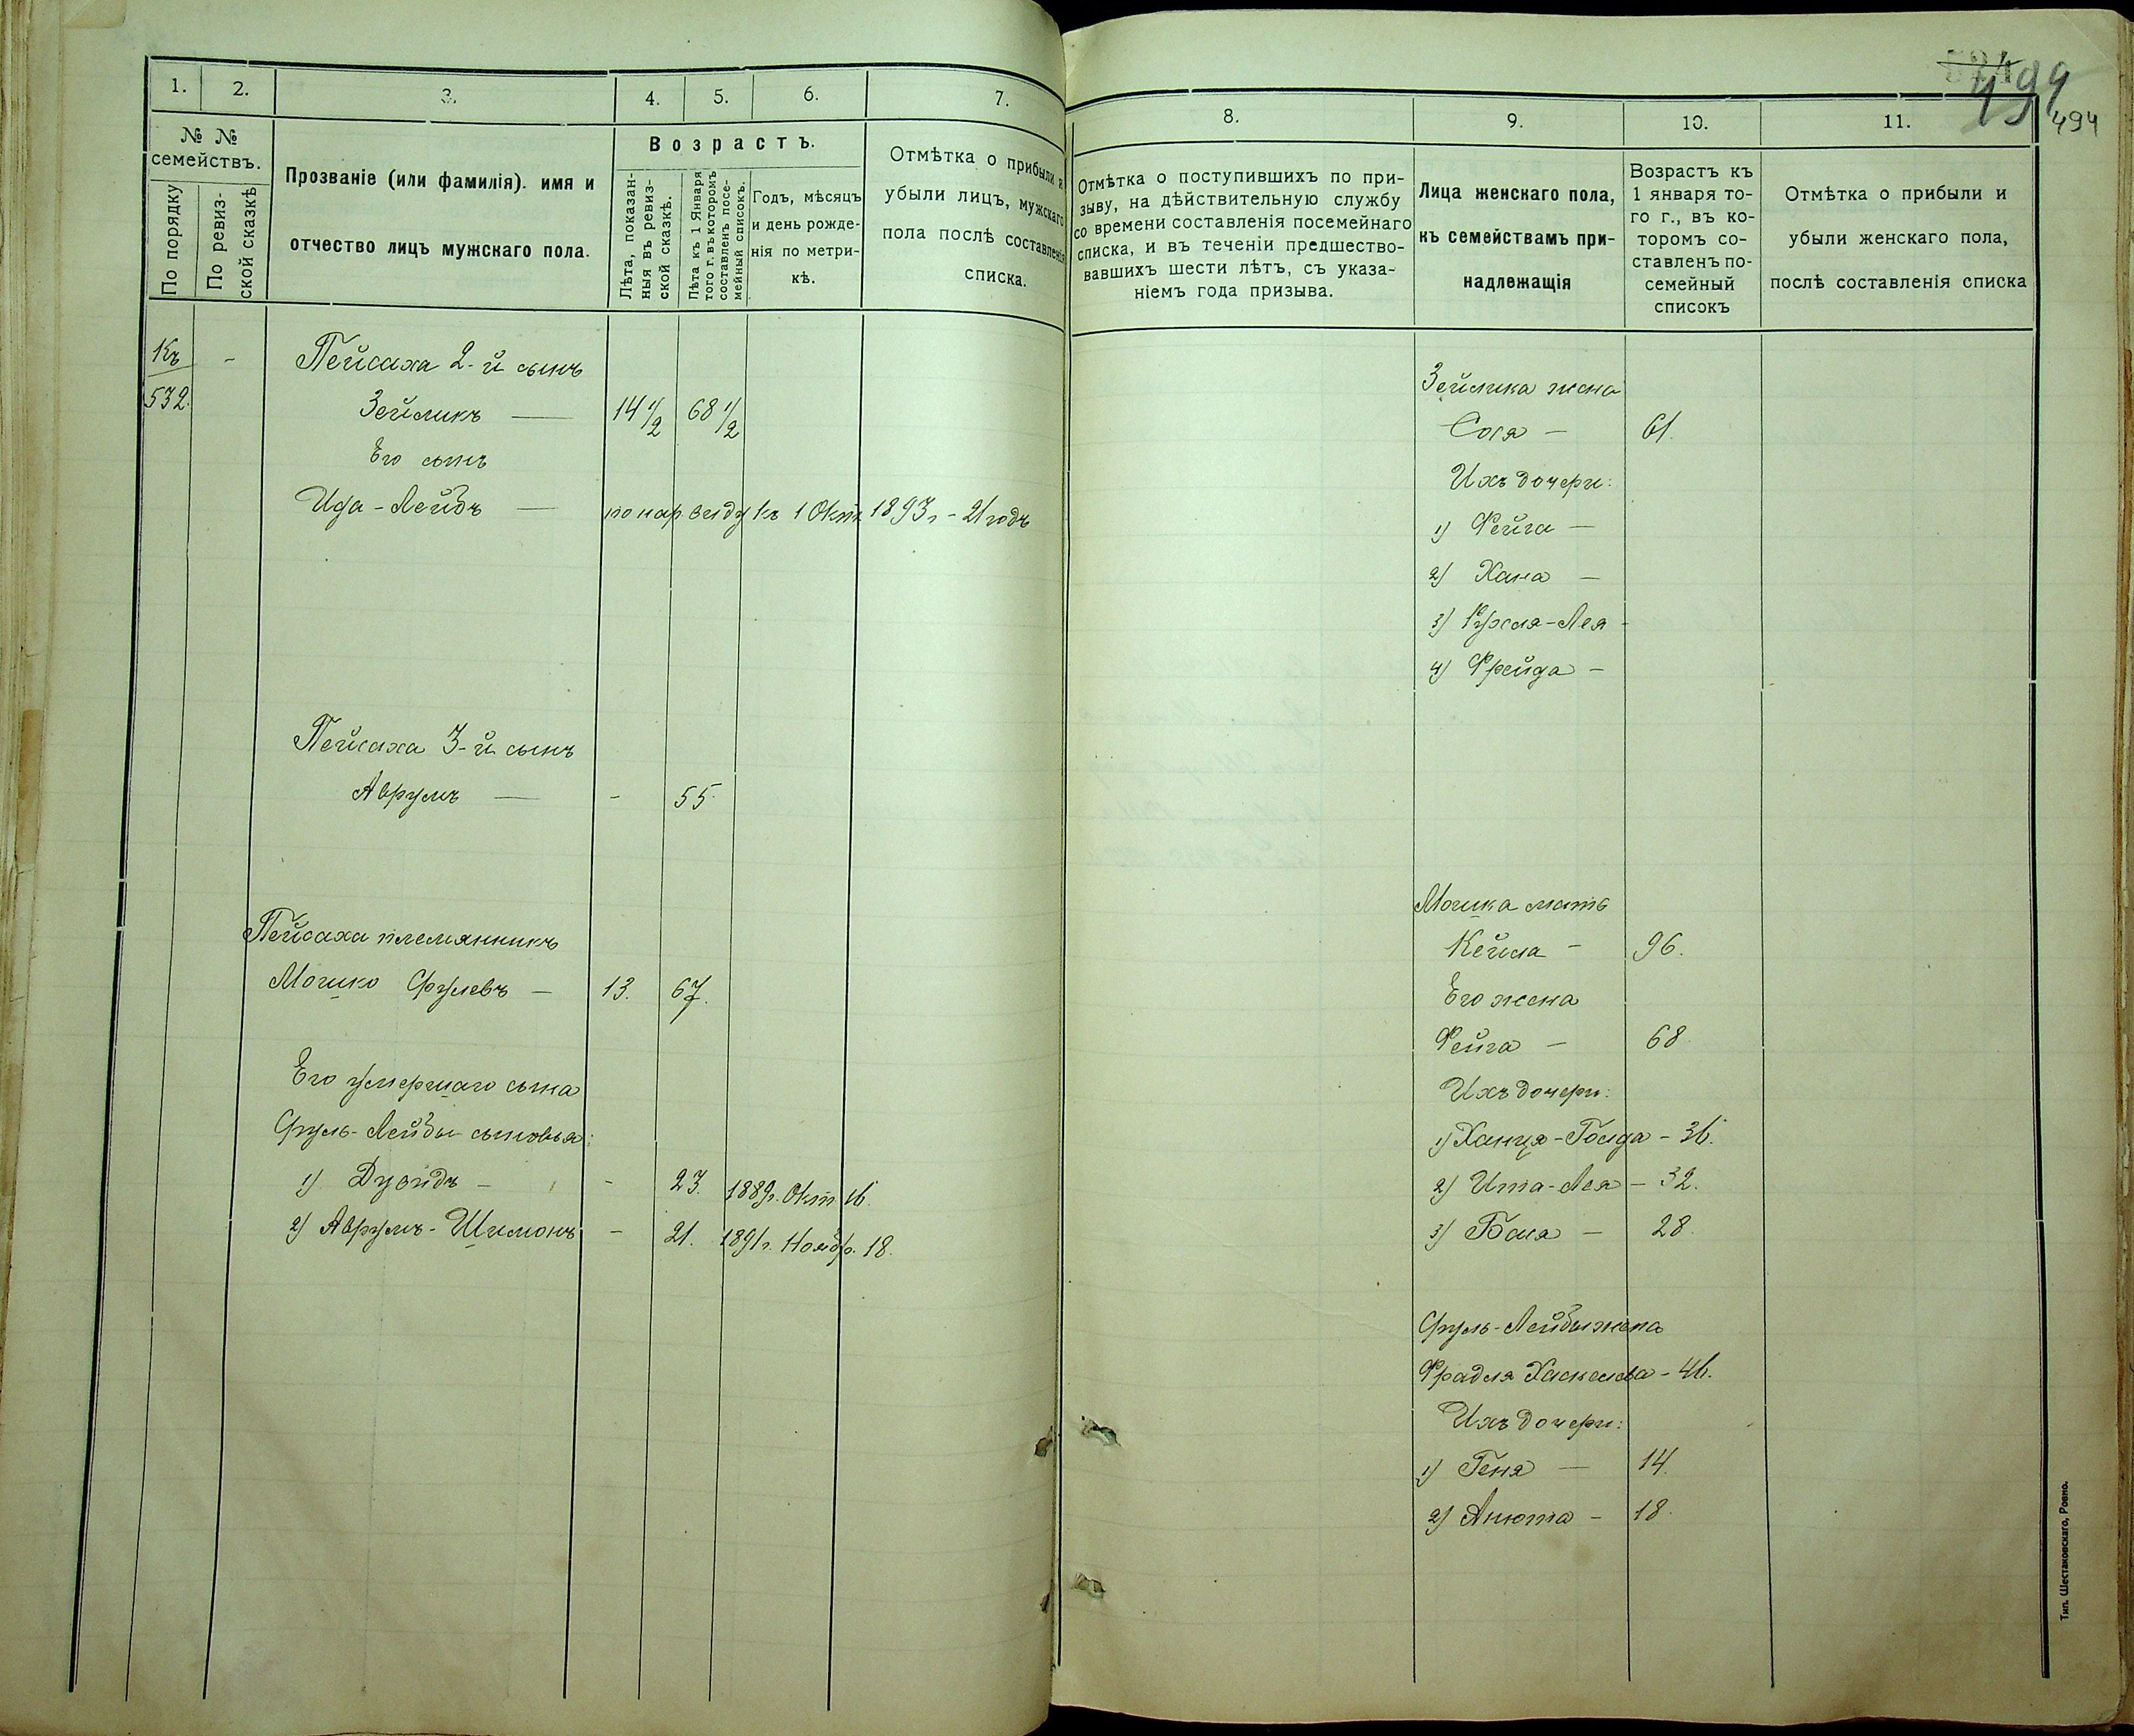 1. 2. 3. 4. 5. 6. 7.
№ №
семействъ.
По порядку
По ревиз-
ской сказкѣ
Прозваніе (или фамилія). имя и
отчество лицъ мужскаго пола.
Возрастъ.
Лѣта, показан-
ныя въ ревиз-
ской сказкѣ.
Лѣта къ 1 Января
того г. въ которомъ
составленъ посе-
мейный списокъ.
Годъ, мѣсяцъ
и день рожде-
нія по метри-
кѣ.
Отмѣтка о прибыли и
убыли лицъ, мужскаго
пола послѣ составленія
списка.
Къ -
532.
Пейсаха 2-й сынъ
Зейликъ — 14 1/2 68 1/2
Его сынъ
Ида-Лейбъ — по нар. виду къ 1 Окт. 1893 г. - 21 годъ
Пейсаха 3-й сынъ
Аврумъ — - 55.
Пейсаха племянникъ
Мошко Срулевъ — 13. 67.
Его умершаго сына
Сруль-Лейбы сыновья:
1) Дувидъ - - 23. 1889 г. Окт. 16.
2) Аврумъ-Шимонъ - 21. 1891 г. Ноябр. 18.
494
494
8. 9. 10. 11.
Отмѣтка о поступившихъ по при-
зыву, на дѣйствительную службу
со времени составленія посемейнаго
списка, и въ теченіи предшество-
вавшихъ шести лѣтъ, съ указа-
ніемъ года призыва.
Лица женскаго пола,
къ семействамъ при-
надлежащія
Возрастъ къ
1 января то-
го г., въ ко-
торомъ со-
ставленъ по-
семейный
списокъ
Отмѣтка о прибыли и
убыли женскаго пола,
послѣ составленія списка
Зейлика жена
Сося — 61.
Ихъ дочери:
1) Фейга —
2) Хана —
3) Рухля-Лея -
4) Фрейда —
Мошка мать
Кейла - 96.
Его жена
Фейга — 68
Ихъ дочери:
1) Ханця-Голда - 36.
2) Ита-Лея - 32.
3) Бася — 28.
Сруль-Лейбы жена
Фрадля Хаскелева - 46.
Ихъ дочери:
1) Геня — 14.
2) Анюта - 18.
Тип. Шестаковскаго, Ровно.